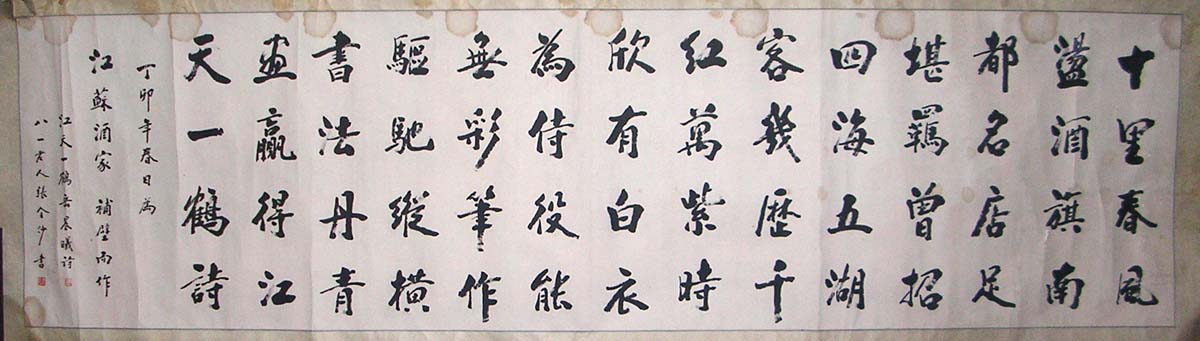 十里春風
盪酒旗南
都名店足
堪羈曾招
四海五湖
客幾歷千
紅萬紫時
欣有白衣
為侍役能
無彩筆作
驅馳縱橫
書法丹青
畫贏得江
天一鶴詩
丁卯年春日為
江蘇酒家 補壁而作
江天一鶴吾晨曦詩
八一老人張令沙書